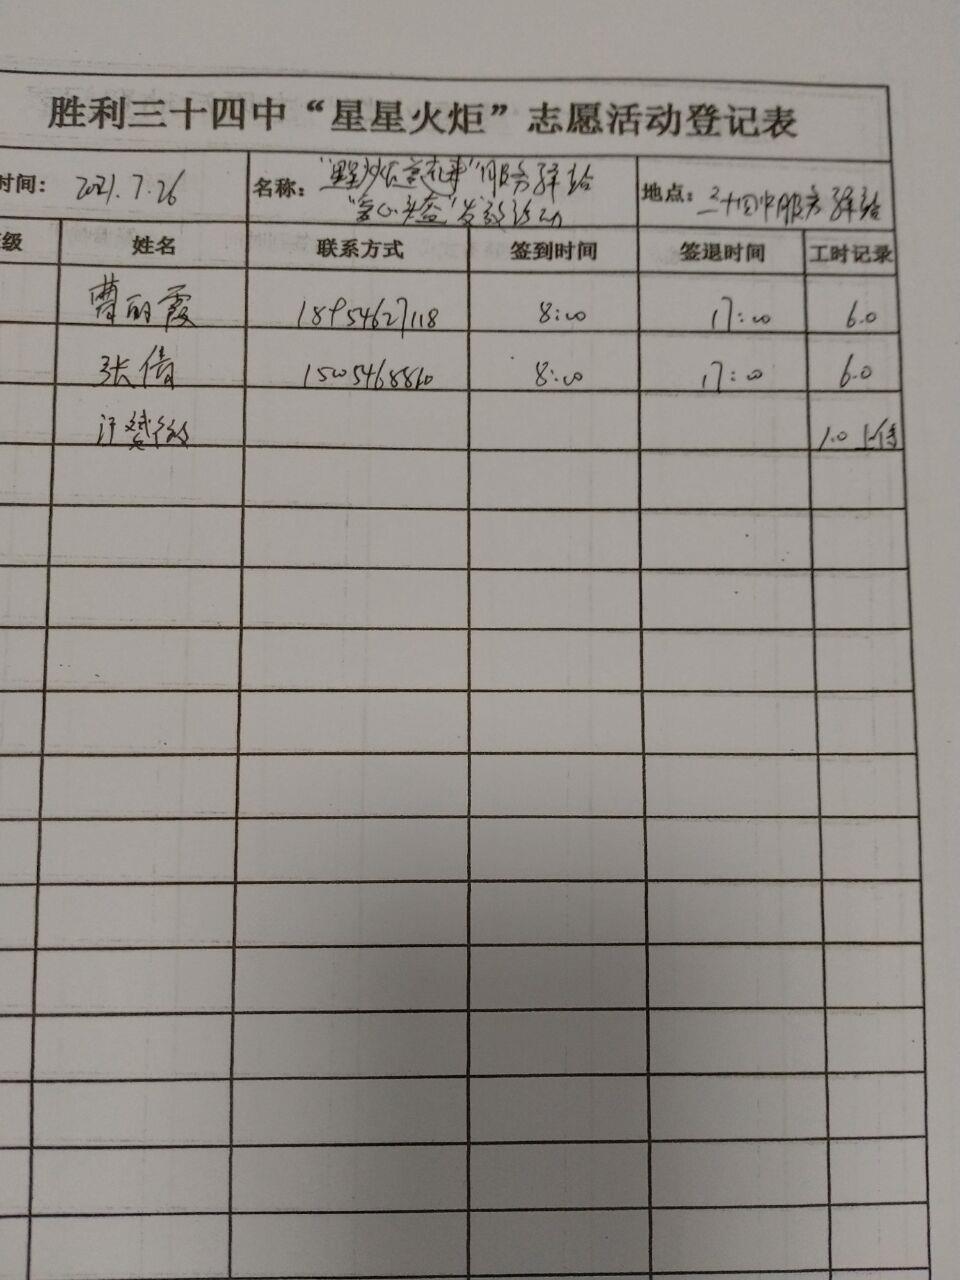 胜利三十四中“星星火炬”志愿活动登记表
时间： 2021.7.26 名称： 服务驿站 地点：三十四中服务驿站
活动
级 姓名 联系方式 签到时间 签退时间 工时记录
曹丽霞 18954627118 8:00 17:00 6.0
张倩 15005468810 8:00 17:00 6.0
许赟徽 1.0 上传